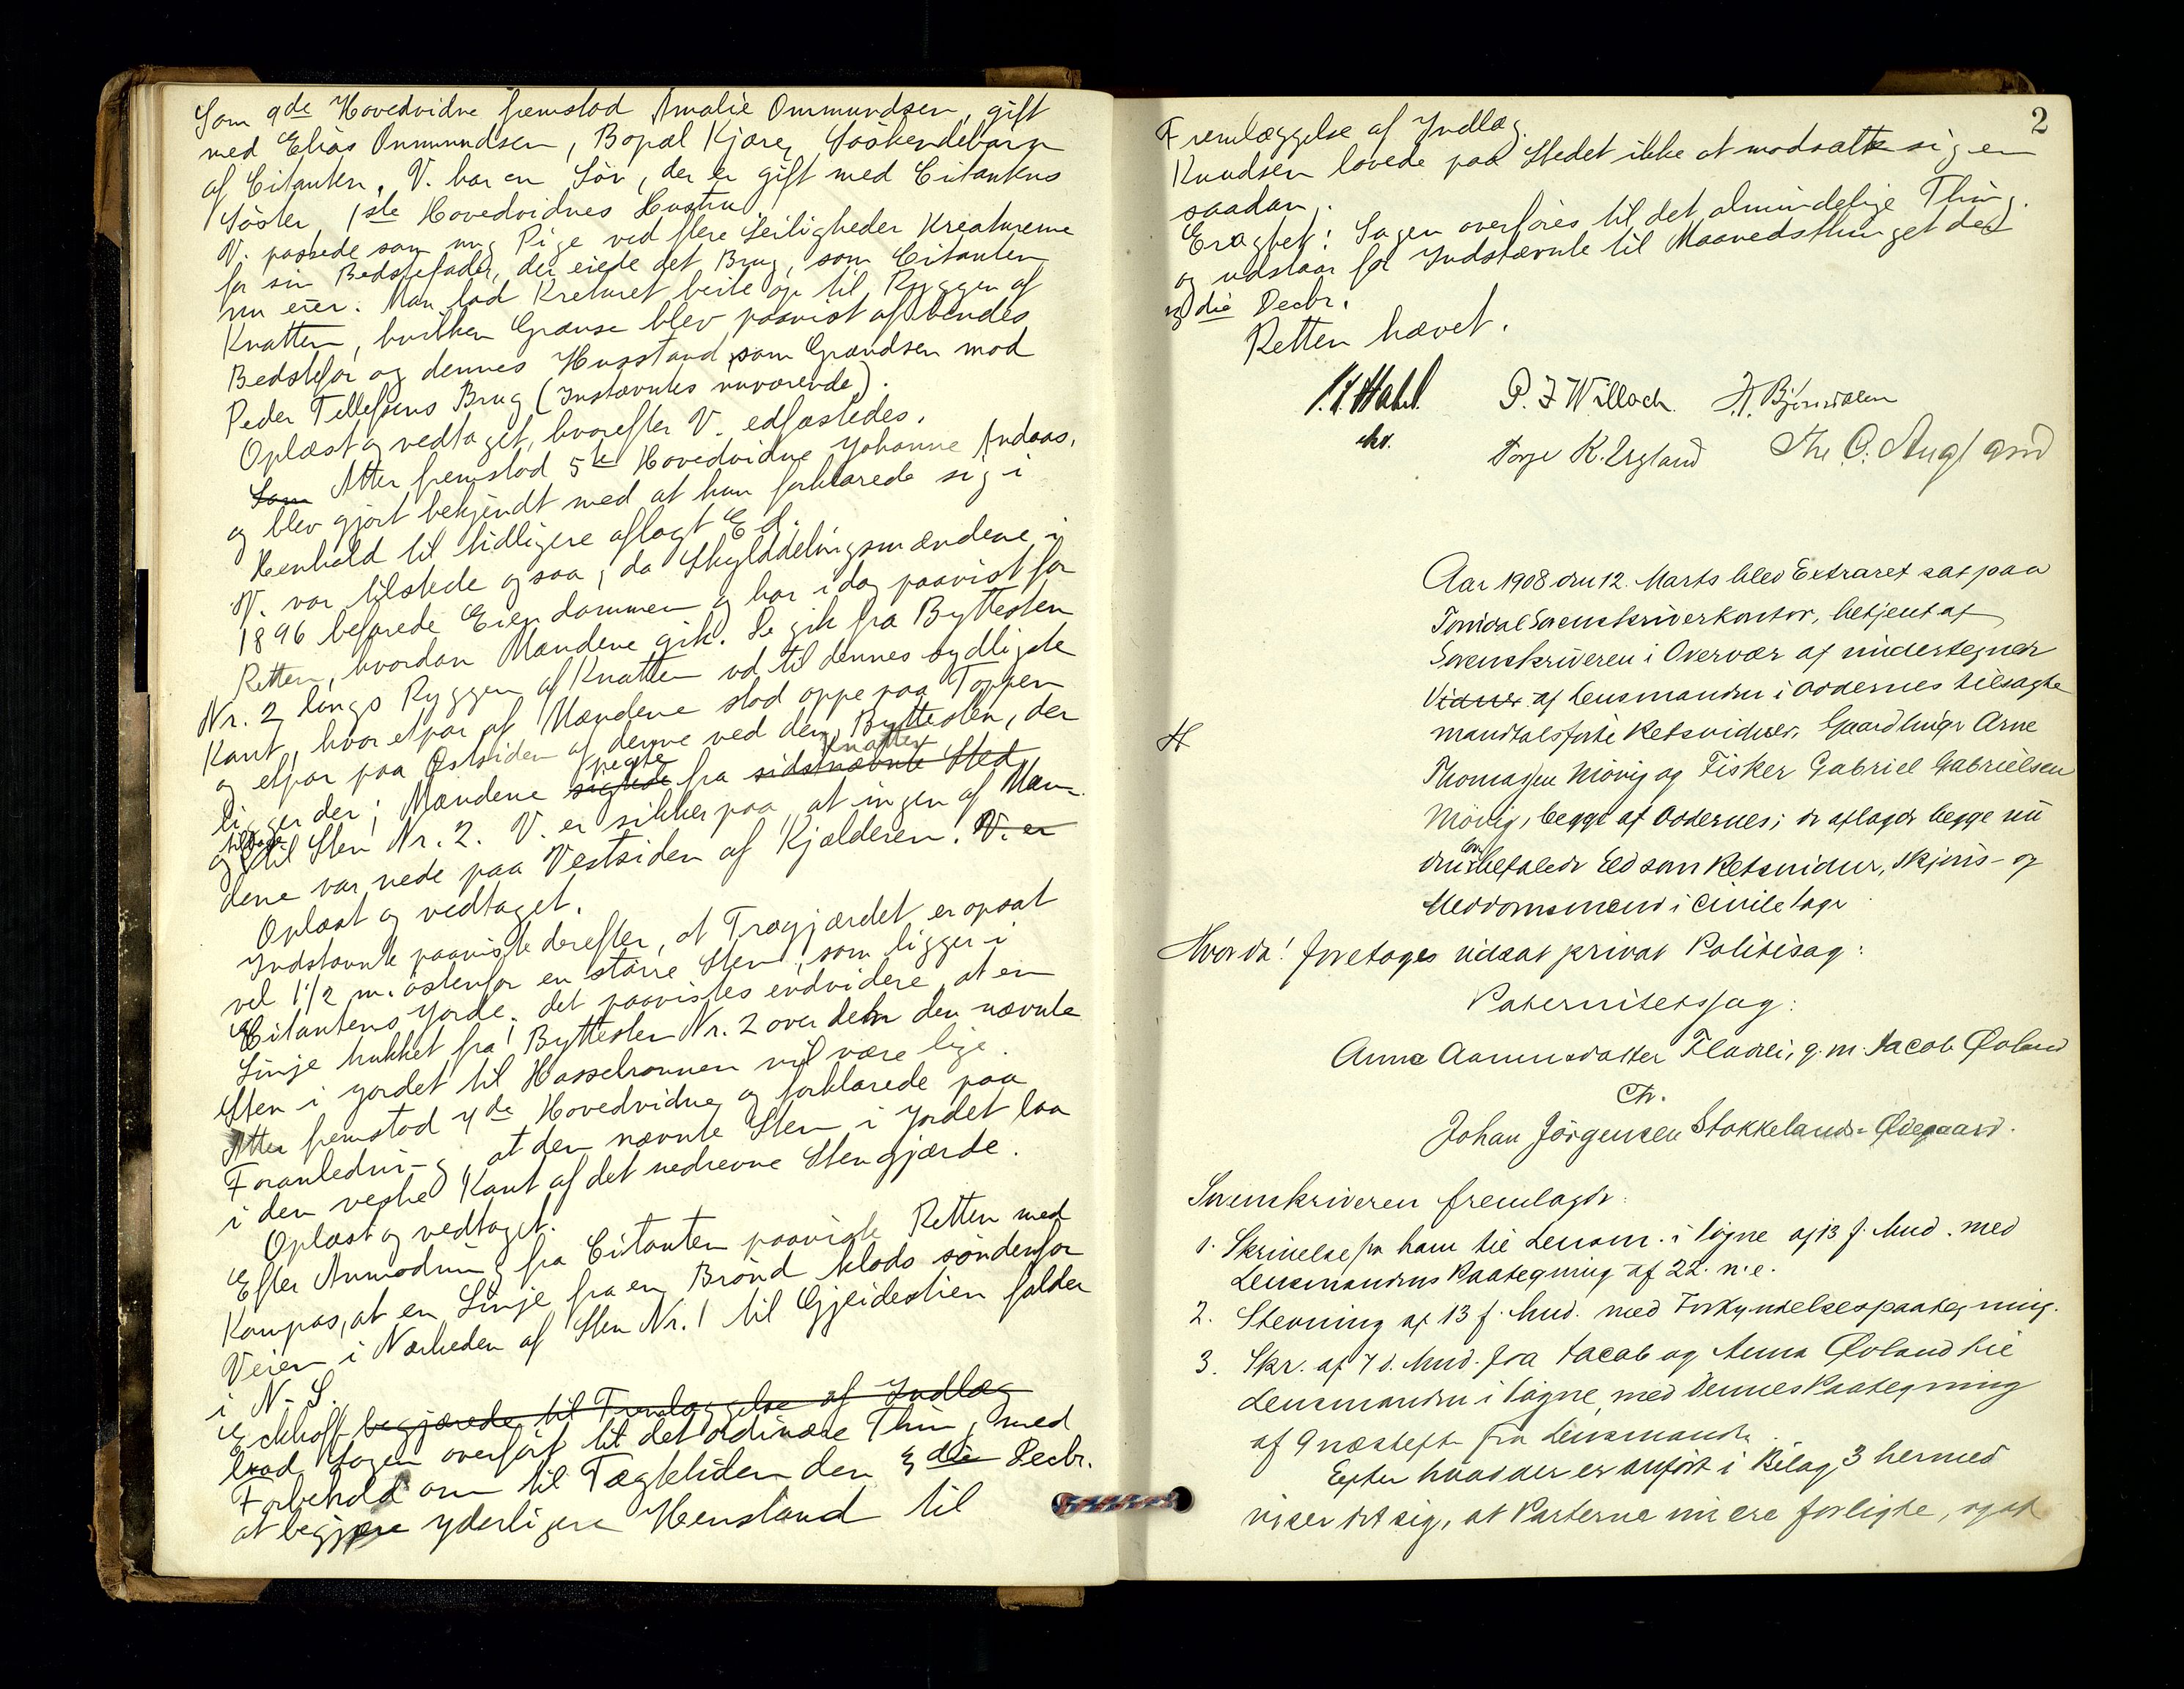 Som 9de Hovedvidne fremstod Amalie Ommundsen, gift
med Elias Ommundsen, Bopæl Kjære, Söskendebarn
af Citanten. V. har en Sön, der er gift med Citantens
Söster, 1ste Hovedvidnes Hustru.
V. passede som ung Pige ved flere Leiligheder Kreaturene
for sin Bedstefader, der eiede det Brug, som Citanten
nu eier. Man lod Kreturet beite op til Ryggen af
Knatten, hvilken Grænse blev paavist af hendes
Bedstefar og dennes Husstand som Grændsen mod
Peder Tellefsens Brug (Instævntes nuværende).
Oplæst og vedtaget, hvorefter V. edfæstedes.
Som Atter fremstod 5te Hovedvidne Johanne Andaas,
og blev gjort bekjendt med at hun forklarede sig i
Henhold til tidligere aflagt Ed.
V. var tilstede ogsaa, da Skylddelingsmændene i
1896 befarede Eiendommen og har idag paavist for
Retten, hvordan Mændene gik. De gik fra Byttesten
Nr. 2 langs Ryggen af Knatten ud til dennes sydligste
Kant, hvor etpar af Mændene stod oppe paa Toppen
og etpar paa Østsiden af denne ved den Byttesten, der
ligger der; Mændene sigtede pegte fra sidstnævnte Sted Knatten
og tilbage til Sten Nr. 2. V. er sikker paa, at ingen af Mæn-
dene var nede paa Vestsiden af Kjælderen. V. er
Oplæst og vedtaget.
Indstævnte paaviste derefter, at Trægjærdet er opsat
vel 1 1/2 m. östenfor en större Sten, som ligger i
Citantens Jorde. det paavistes endvidere, at en
Linje trukket fra Byttesten Nr. 2 over den den nævnte
Sten i Jordet til Hasselrunnen vil være lige.
Atter fremstod 4de Hovedvidne og forklarede paa
Foranledning, at den nævnte Sten i Jordet laa
i den vestre Kant af det nedrevne Stengjærde.
Oplæst og vedtaget.
Efter Anmodning fra Citanten paaviste Retten med
Kompas, at en Linje fra en Brönd klods söndenfor
Veien i Nærheden af Sten Nr. 1 til Gjeidestien falder
i N. S.
Eckhoff begjærede til Fremlæggelse af Indlæg
bad Sagen overfört til det ordinære Thing, med
Forbehold om til Tægtetiden den 3die Decbr.
at begjære yderligere Henstand til
2
Fremlæggelse af Indlæg.
Knudsen lovede paa Stedet ikke at modsætte sig en
saadan.
Eragtet: Sagen overföres til det almindelige Thing.
og udstaar for Indstævnte til Maanedsthinget den
3die Decbr.
Retten hævet.
P. I Willoch. H. Björnvalen
Torje K. Ergland The O. Augland
Aar 1908 den 12. Marts blev Extraret sat paa
Torridal Sorenskriverkontor, betjent af
Sorenskriveren i Overvær af undertegnede
Vidner af Lensmanden i Oddernes tilsagte
mandtalsførte Retsvidner, Gaardbruger Arne
Thomassen Mövig og Fisker Gabriel Gabrielsen
Mövig, begge af Oddernes; de aflagde begge nu
den befalede Ed som Retsvidner, Skjöns- og
Meddomsmænd i civile Sager
Hvorda! foretoges udsat privat Politisag:
Paternitetssag:
Anna Aanensdatter Fladli, g. m. Jacob Øvland
Ctr.
Johan Jörgensen Stokkeland-Ødegaard.
Sorenskriveren fremlagde:
1. Skrivelse fra ham til Lensm. i Sögne af 13 f. Mnd. med
Lensmandens Paategning af 22. n.e.
2. Stevning af 13 f. Mnd. med Forkyndelsespaategning.
3. Skr. af 7 d. Mnd. fra Jacob og Anna Øvland til
Lensmanden i Sögne, med dennes Paategning
af 9 næstefter fra Lensmanden.
Efter hvad der er anfört i Bilag 3 hermed
viser det sig, at Parterne nu ere forligte, og at